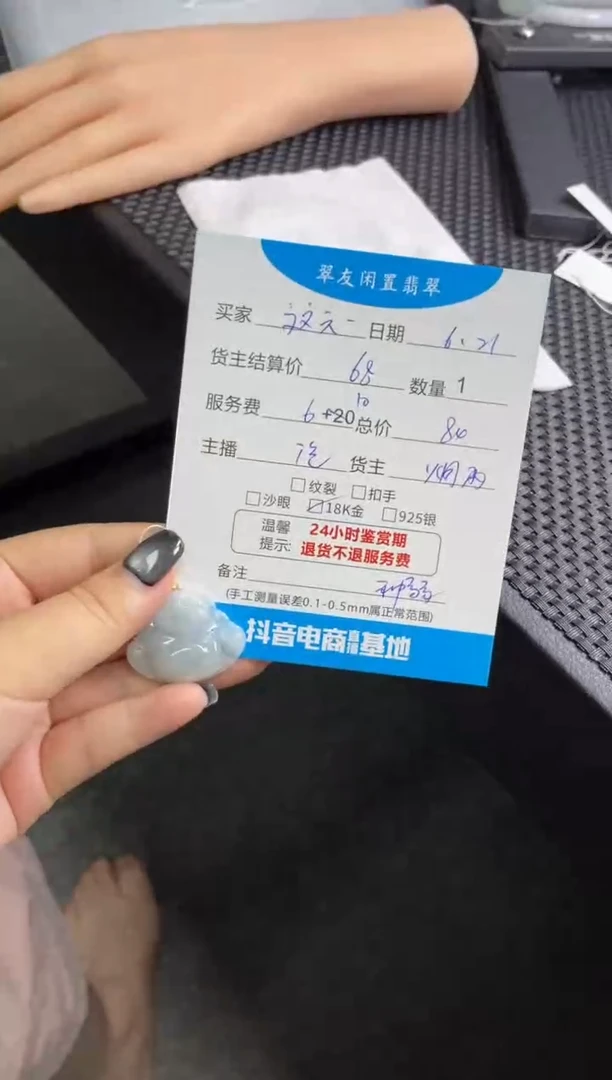 翠友闲置翡翠
买家 日期 6.21
货主结算价 68 数量 1
10
服务费 6 +20 总价 80
主播 货主 烟雨
□纹裂 □扣手
□沙眼 ☑18K金 □925银
温馨提示: 24小时鉴赏期
退货不退服务费
备注
(手工测量误差0.1-0.5mm属正常范围)
抖音电商直播基地